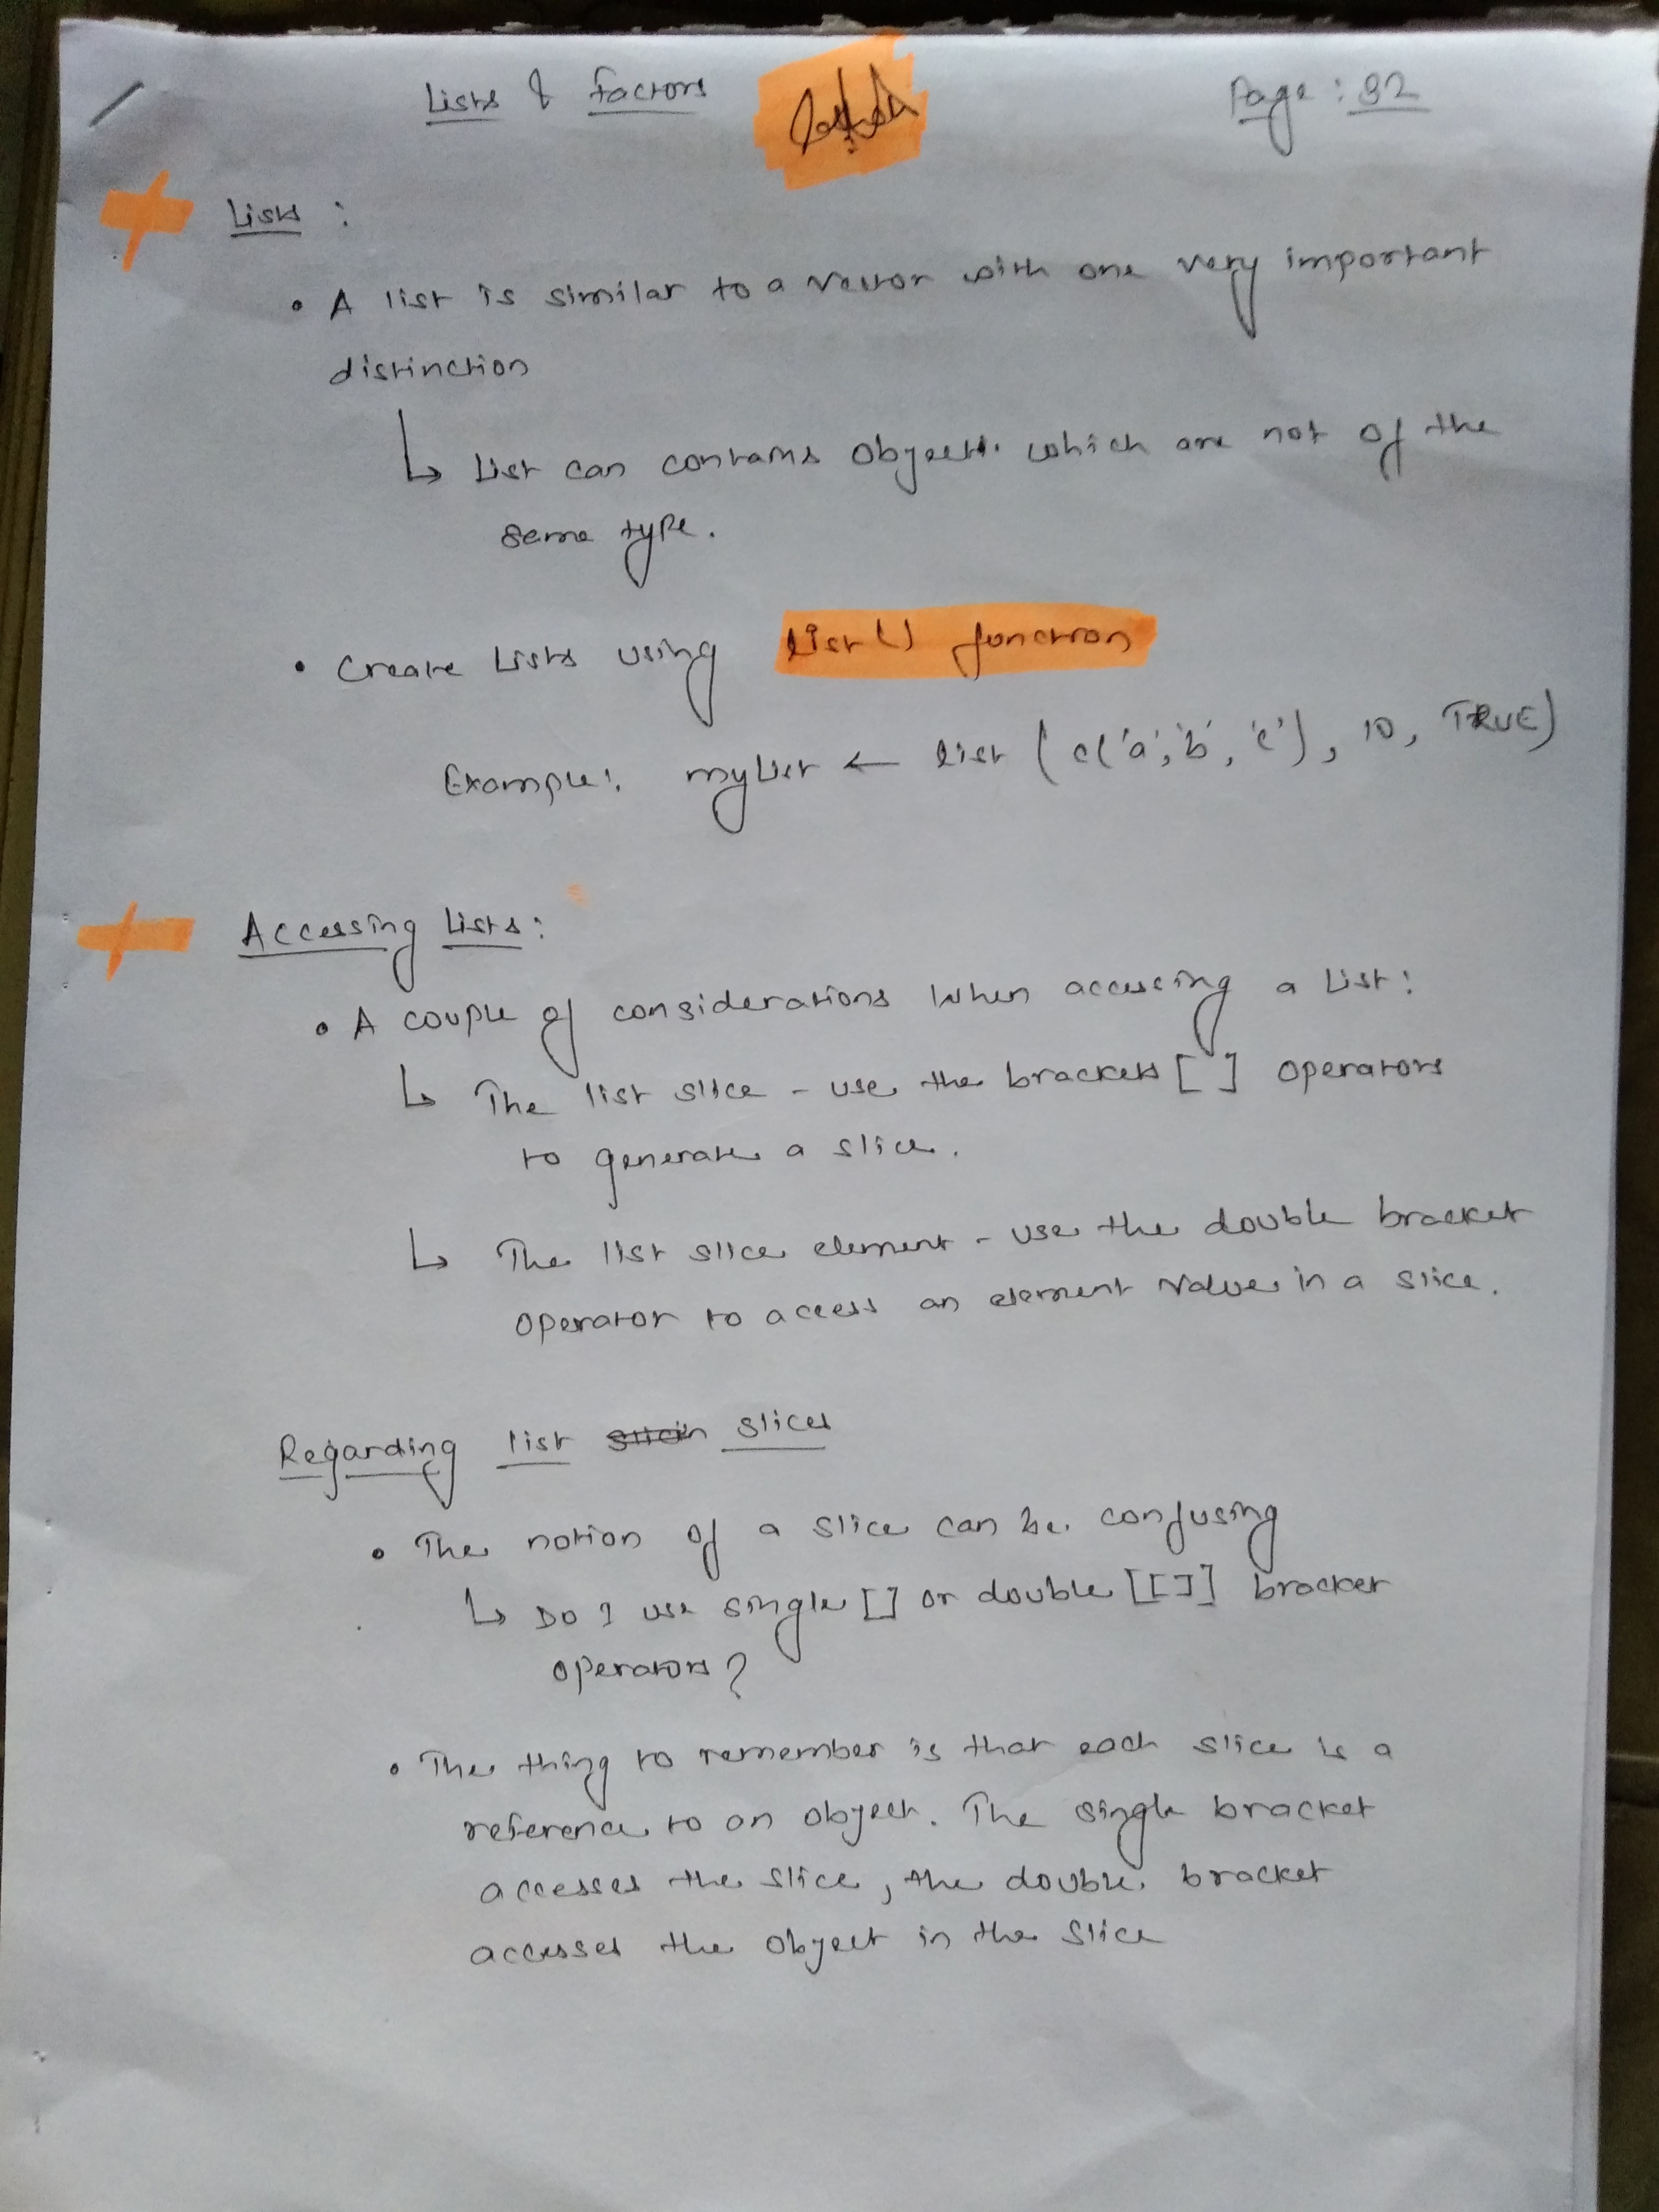 Lists & Factors
Page: 92
Lists :
• A list is similar to a vector with one very important
distinction
↳ List can contains objects. which are not of the
same type.
• Create Lists using list() function
Example: mylist ← list (c('a', 'b', 'c'), 10, TRUE)
Accessing Lists:
• A couple of considerations when accessing a List:
↳ The list slice - use the brackets [ ] operators
to generate a slice.
↳ The list slice element - use the double bracket
operator to access an element value in a slice.
Regarding list slices
• The notion of a slice can be confusing
↳ Do I use single [] or double [[]] bracket
operators?
• The thing to remember is that each slice is a
reference to an object. The single bracket
accesses the slice, the double bracket
accesses the object in the slice